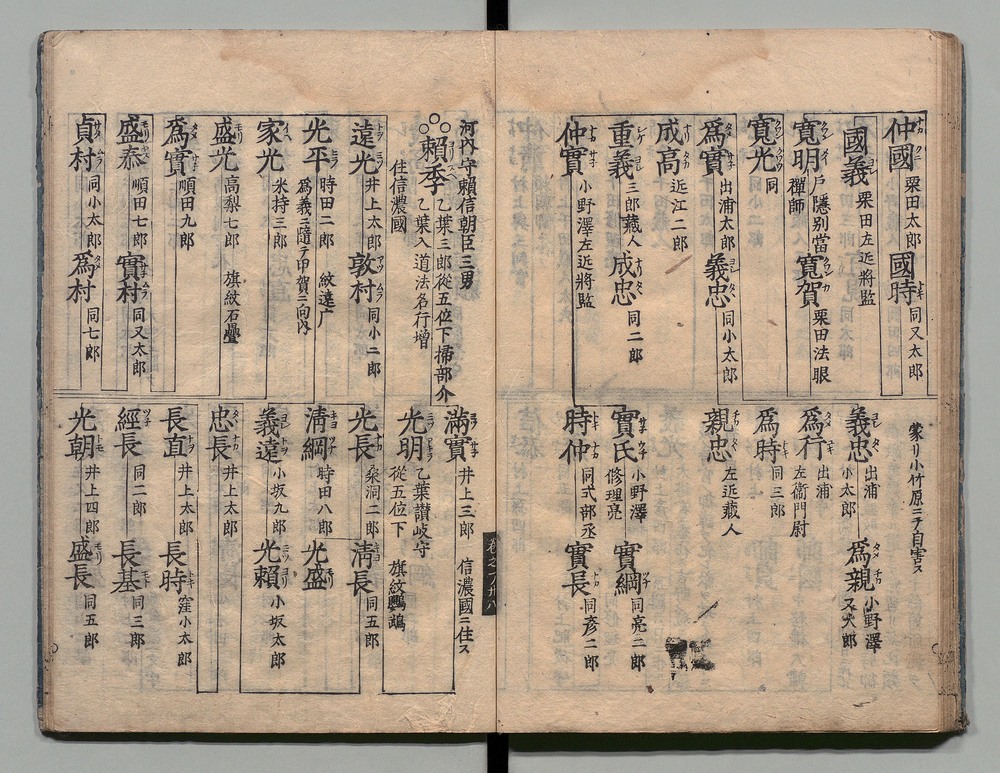 仲國 栗田太郎 國時 同又太郎
國義 栗田左近將監
寛明 戸隱別當 禪師 寛賀 栗田法眼
寛光 同
爲實 出浦太郎 義忠 同小太郎
成高 近江二郎
重義 三郎藏人 成忠 同二郎
仲實 小野澤左近將監
蒙リ小竹原ニテ自害ス
義忠 出浦小太郎 爲親 小野澤又太郎
爲行 出浦左衞門尉
爲時 同三郎
親忠 左近藏人
實氏 小野澤修理亮 實綱 同亮二郎
時仲 同式部丞 實長 同彦二郎
河内守賴信朝臣三男
賴季 乙葉三郎從五位下掃部介
乙葉入道法名行增
住信濃國
遠光 井上太郎 敦村 同小二郎
光平 時田二郎 紋遠广
爲義ニ隨テ甲賀ニ向内
家光 米持三郎
盛光 高梨七郎 旗紋石疊
爲實 順田九郎
盛泰 順田七郎 實村 同又太郎
貞村 同小太郎 爲村 同七郎
滿實 井上三郎 信濃國ニ住ス
光明 乙葉讃岐守 從五位下 旗紋鸚鵡
光長 桑洞二郎 淸長 同五郎
淸綱 時田八郎 光盛
義遠 小坂九郎 光賴 小坂太郎
忠長 井上太郎
長直 井上太郎 長時 窪小太郎
經長 同二郎 長基 同三郎
光朝 井上四郎 盛長 同五郎
卷之一ノ卅八